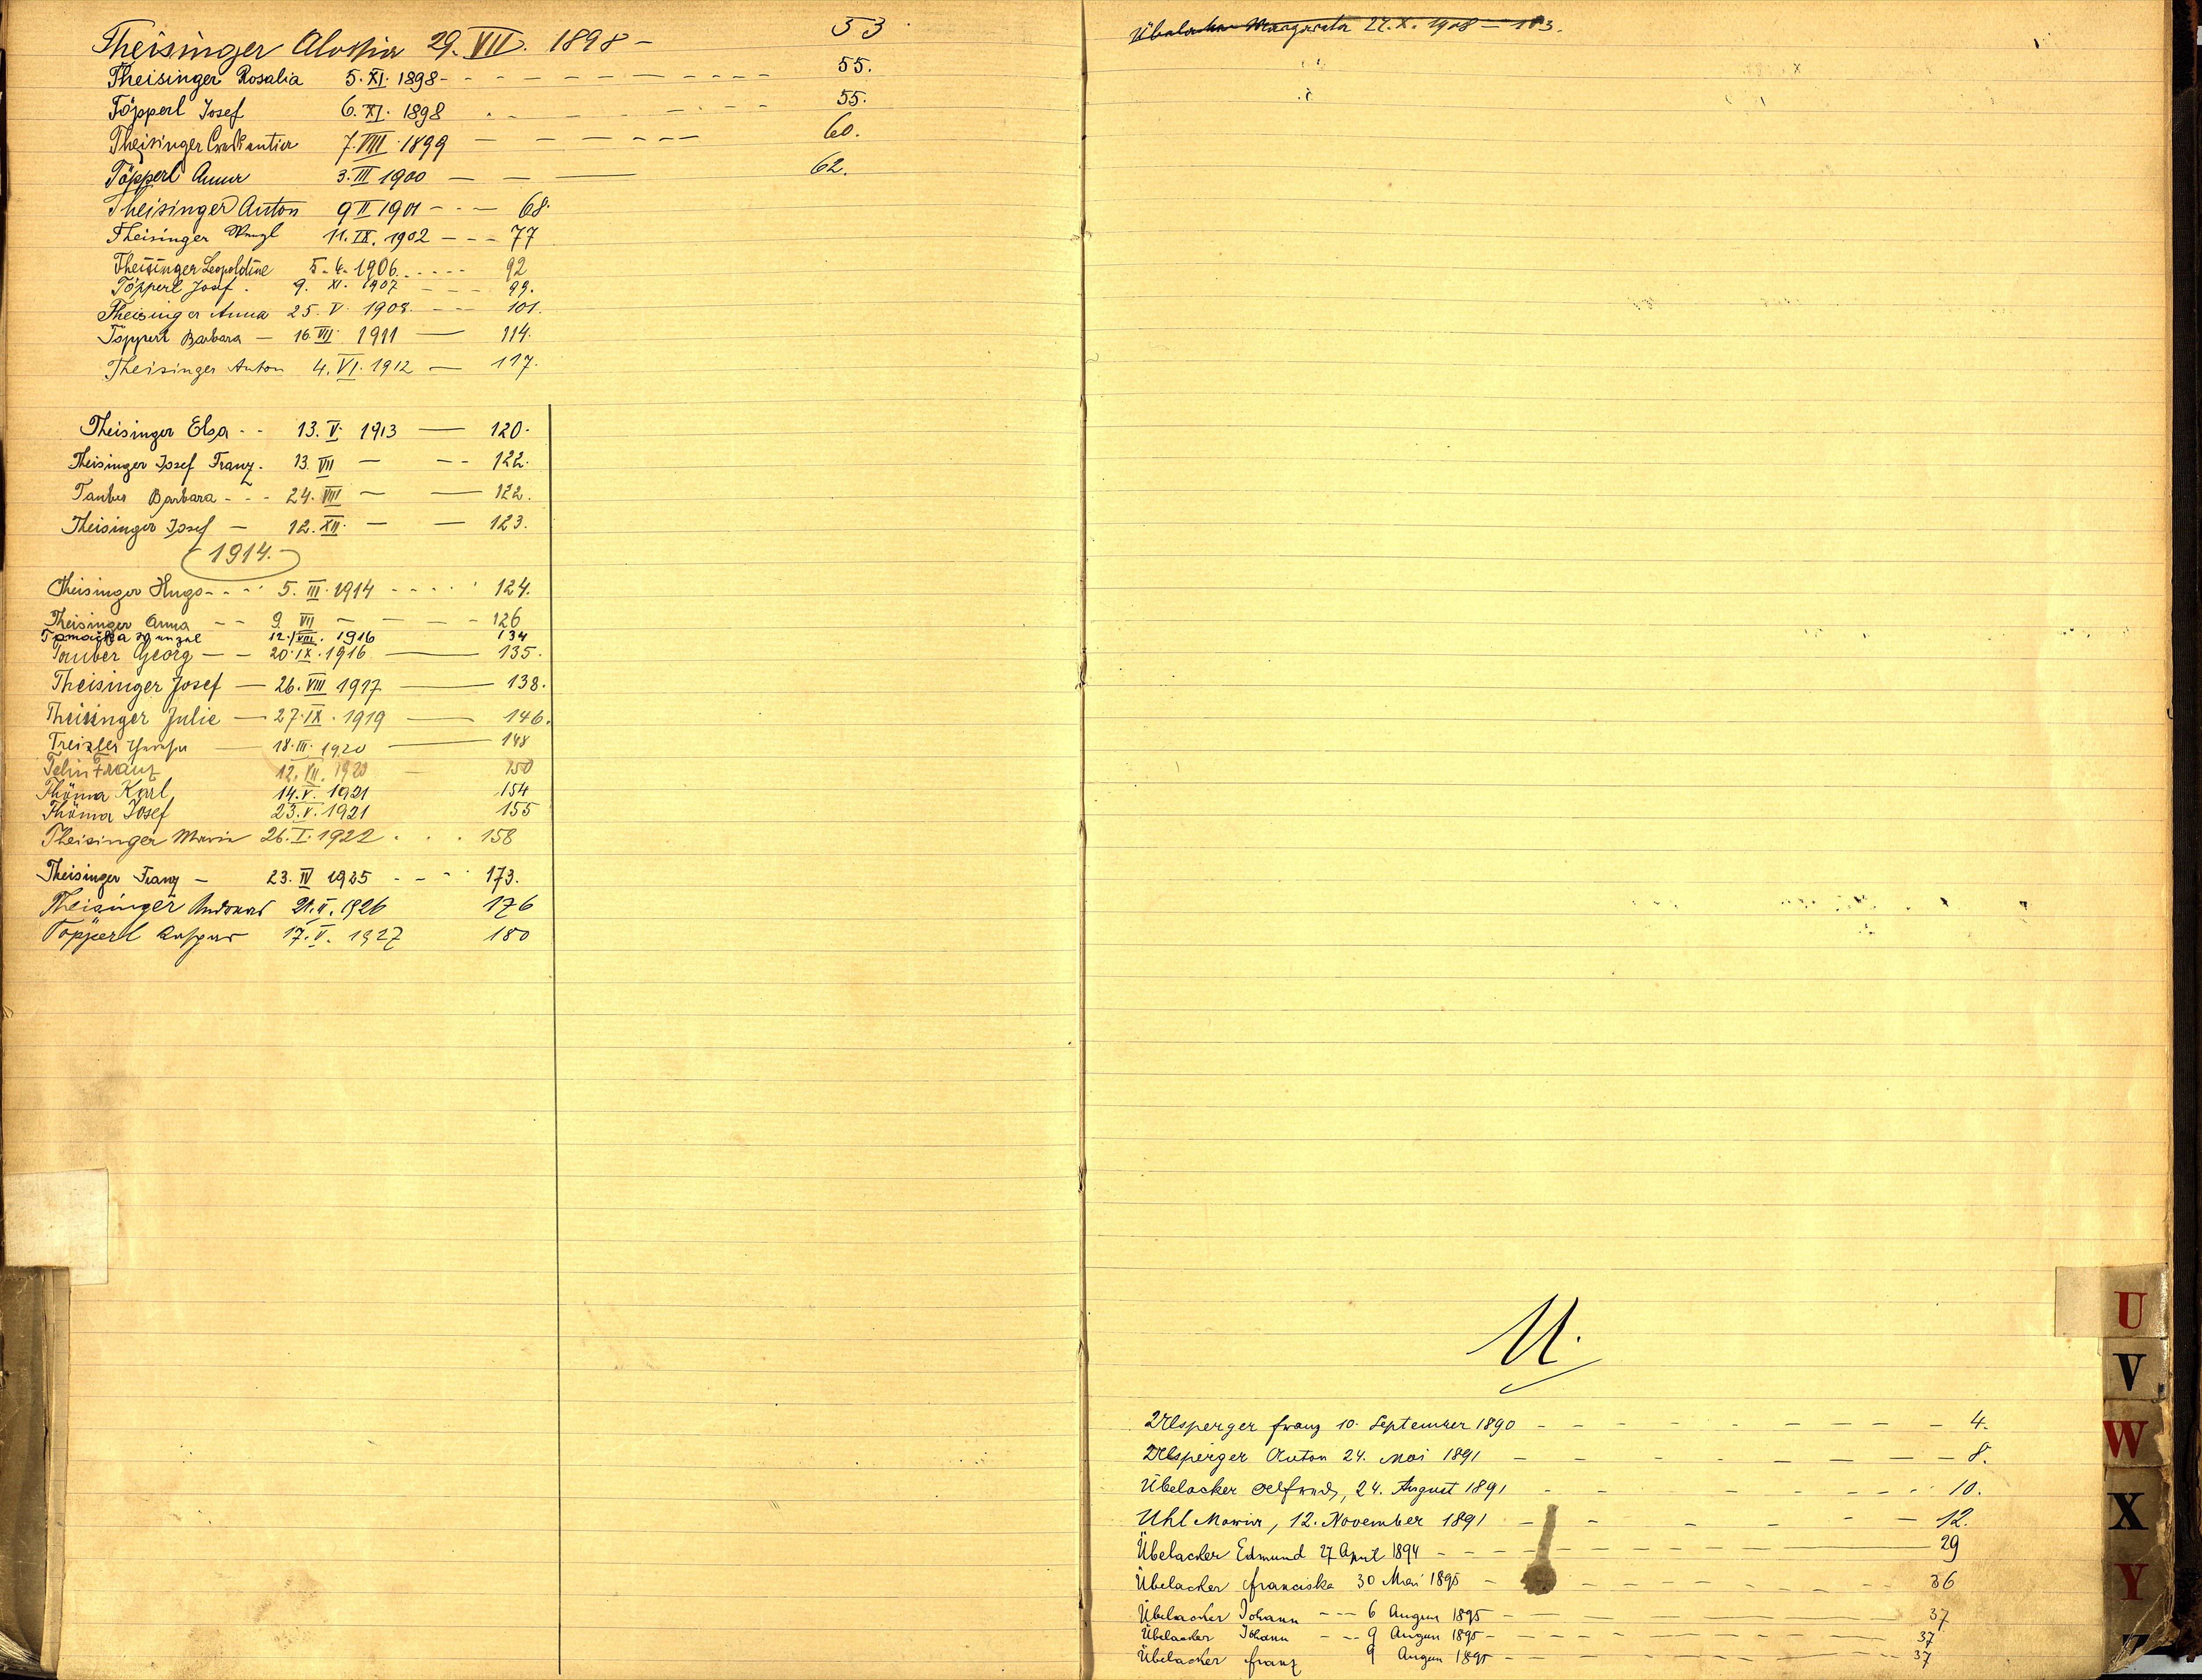 Theisinger Aloisia 29. VII. 1898 - 53
Theisinger Rosalia 5. XI. 1898 - - - - - - - - - - - 55.
Töpperl Josef 6. XI. 1898 - - - - - - 55.
Theisinger 7. VIII. 1899 - - - - - - 60.
Töpperl Anna 3. III 1900 - - - 62.
Theisinger Anton 9 II 1901 - - - 68.
Theisinger Wenzl 11. IX. 1902 - - - 77
Theisinger Leopoldine 5. 4. 1906 - - - - 92
Töpperl Josef. 9. XI. 1907 - - - - 99.
Theisinger Anna 25. V. 1908. - - - 101.
Töpperl Barbara - 16. VII. 1911 - 114.
Theisinger Anton 4. VI. 1912 - 117.
Theisinger Elsa - - 13. V. 1913 - 120.
Theisinger Josef Franz. 13. VII - - - 122.
Tauber Barbara - - - 24. VIII - - 122.
Theisinger Josef - 12. XII. - - 123.
1914.-
Theisinger Hugo - - - 5. III. 1914 - - - - 124.
Theisinger Anna - - 9. VII - - - - 126
Wenzel 12. VIII. 1916 134
Tauber Georg - - 20. IX. 1916 - 135.
Theisinger Josef - 26. VIII 1917 - 138.
Theisinger Julie - 27. IX. 1919 - 146.
Treixler - 18. III. 1920 - 148
Franz 12. VII. 1920 - 150
Thöma Karl 14. V. 1921 154
Thöma Josef 23. V. 1921 155
Theisinger Maria 26. I. 1922 . . . 158
Theisinger Franz - 23. IV 1925 - - - 173.
Theisinger 21. II. 1926 176
Töpperl 17. V. 1927 180
Übelacker Margareta 27. X. 1908 - 103.
U.
Ulsperger Franz 10. September 1890 - - - - - - - - - - 4.
Ulsperger Anton 24. Mai 1891 - - - - - - - - - - 8.
Übelacker 24. August 1891 - - - - - - - 10.
Uhl Maria, 12. November 1891 - - - - - - 12.
Übelacker Edmund 27 April 1894 - - - - - - - - - - 29
Übelacker Franciska 30 Mai 1895 - - - - - - - - - 36
Übelacker Johann - - - 6 August 1895 - - - - - - 37
Übelacker Johann - - - 9 August 1895 - - - - - - - 37
Übelacker Franz 9 August 1895 - - - - - - - - 37
U
V
W
X
Y